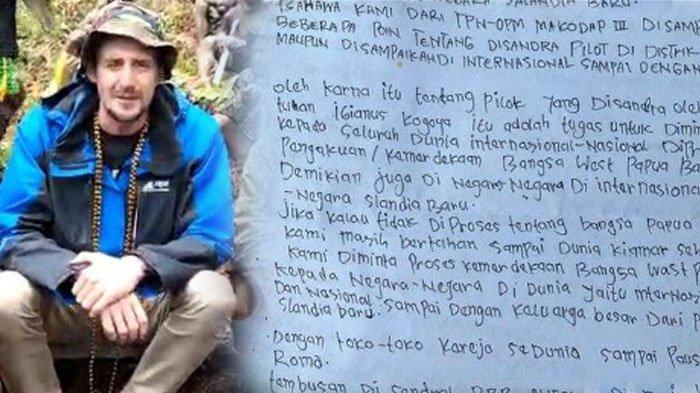 NEGARA SELANDIA BARU.
BAHAWA KAMI DARI TPN-OPM MAKODAP III DISAM
BEBERAPA POIN TENTANG DISANDRA PILOT DI DISTRI
MAUPUN DISAMPAIKANDI INTERNASIONAL SAMPAI DENGAN
oleh karna itu tentang pilot yang Disandra ole
tuhan IGianus Kogoya itu adalah tugas untuk Dimi
kepada Seluruh Dunia internasional-Nasional DiB
Pengakuan/kemerdekaan Bangsa West Papua Ba
Demikian juga Di Negara-Negara Di internasiona
-Negara Slandia Baru.
Jika kalau tidak Di Proses tentang bangsa Papua
kami masih bertahan sampai Dunia kiamat sa
kami Diminta Proses kemerdekaan Bangsa West
kepada Negara-Negara Di Dunia yaitu interna
Dan Nasional. sampai Dengan kaluarga besar Dari P
Slandia baru.
Dengan toko-toko Kareja seDunia sampai Paus
Roma.
tambusan Di